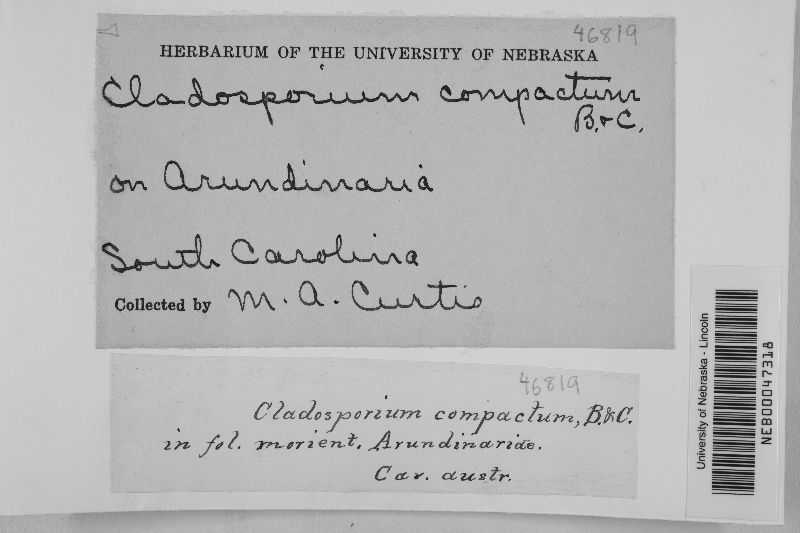 46819
HERBARIUM OF THE UNIVERSITY OF NEBRASKA
Cladosporium compactum
B.&C.
on Arundinaria
South Carolina
Collected by M. A. Curtis
46819
Cladosporium compactum, B.&C.
in fol. morient. Arundinariae.
Car. austr.
University of Nebraska - Lincoln
NEB00047318